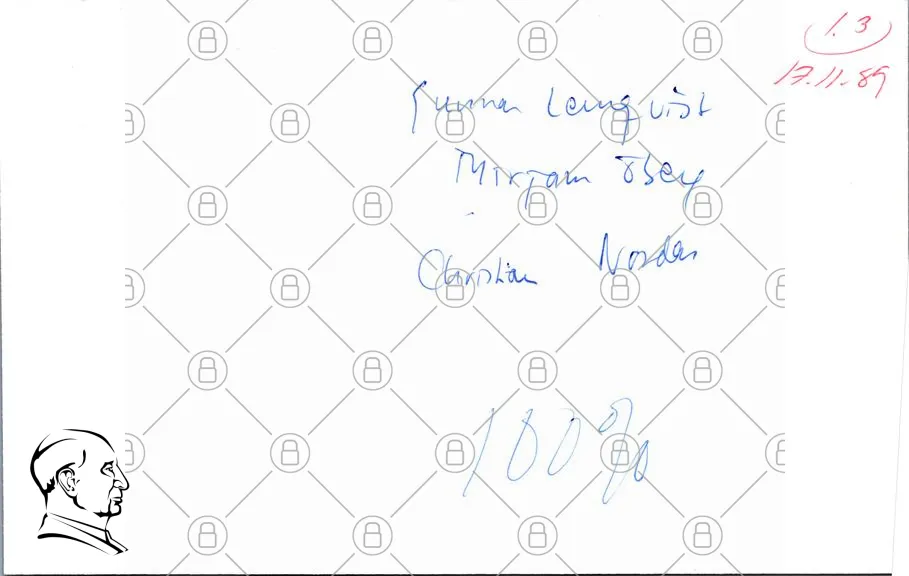 1.3
17.11.89
Gunnar Lernqvist
Mirjam Öberg
Christian Norden
100%